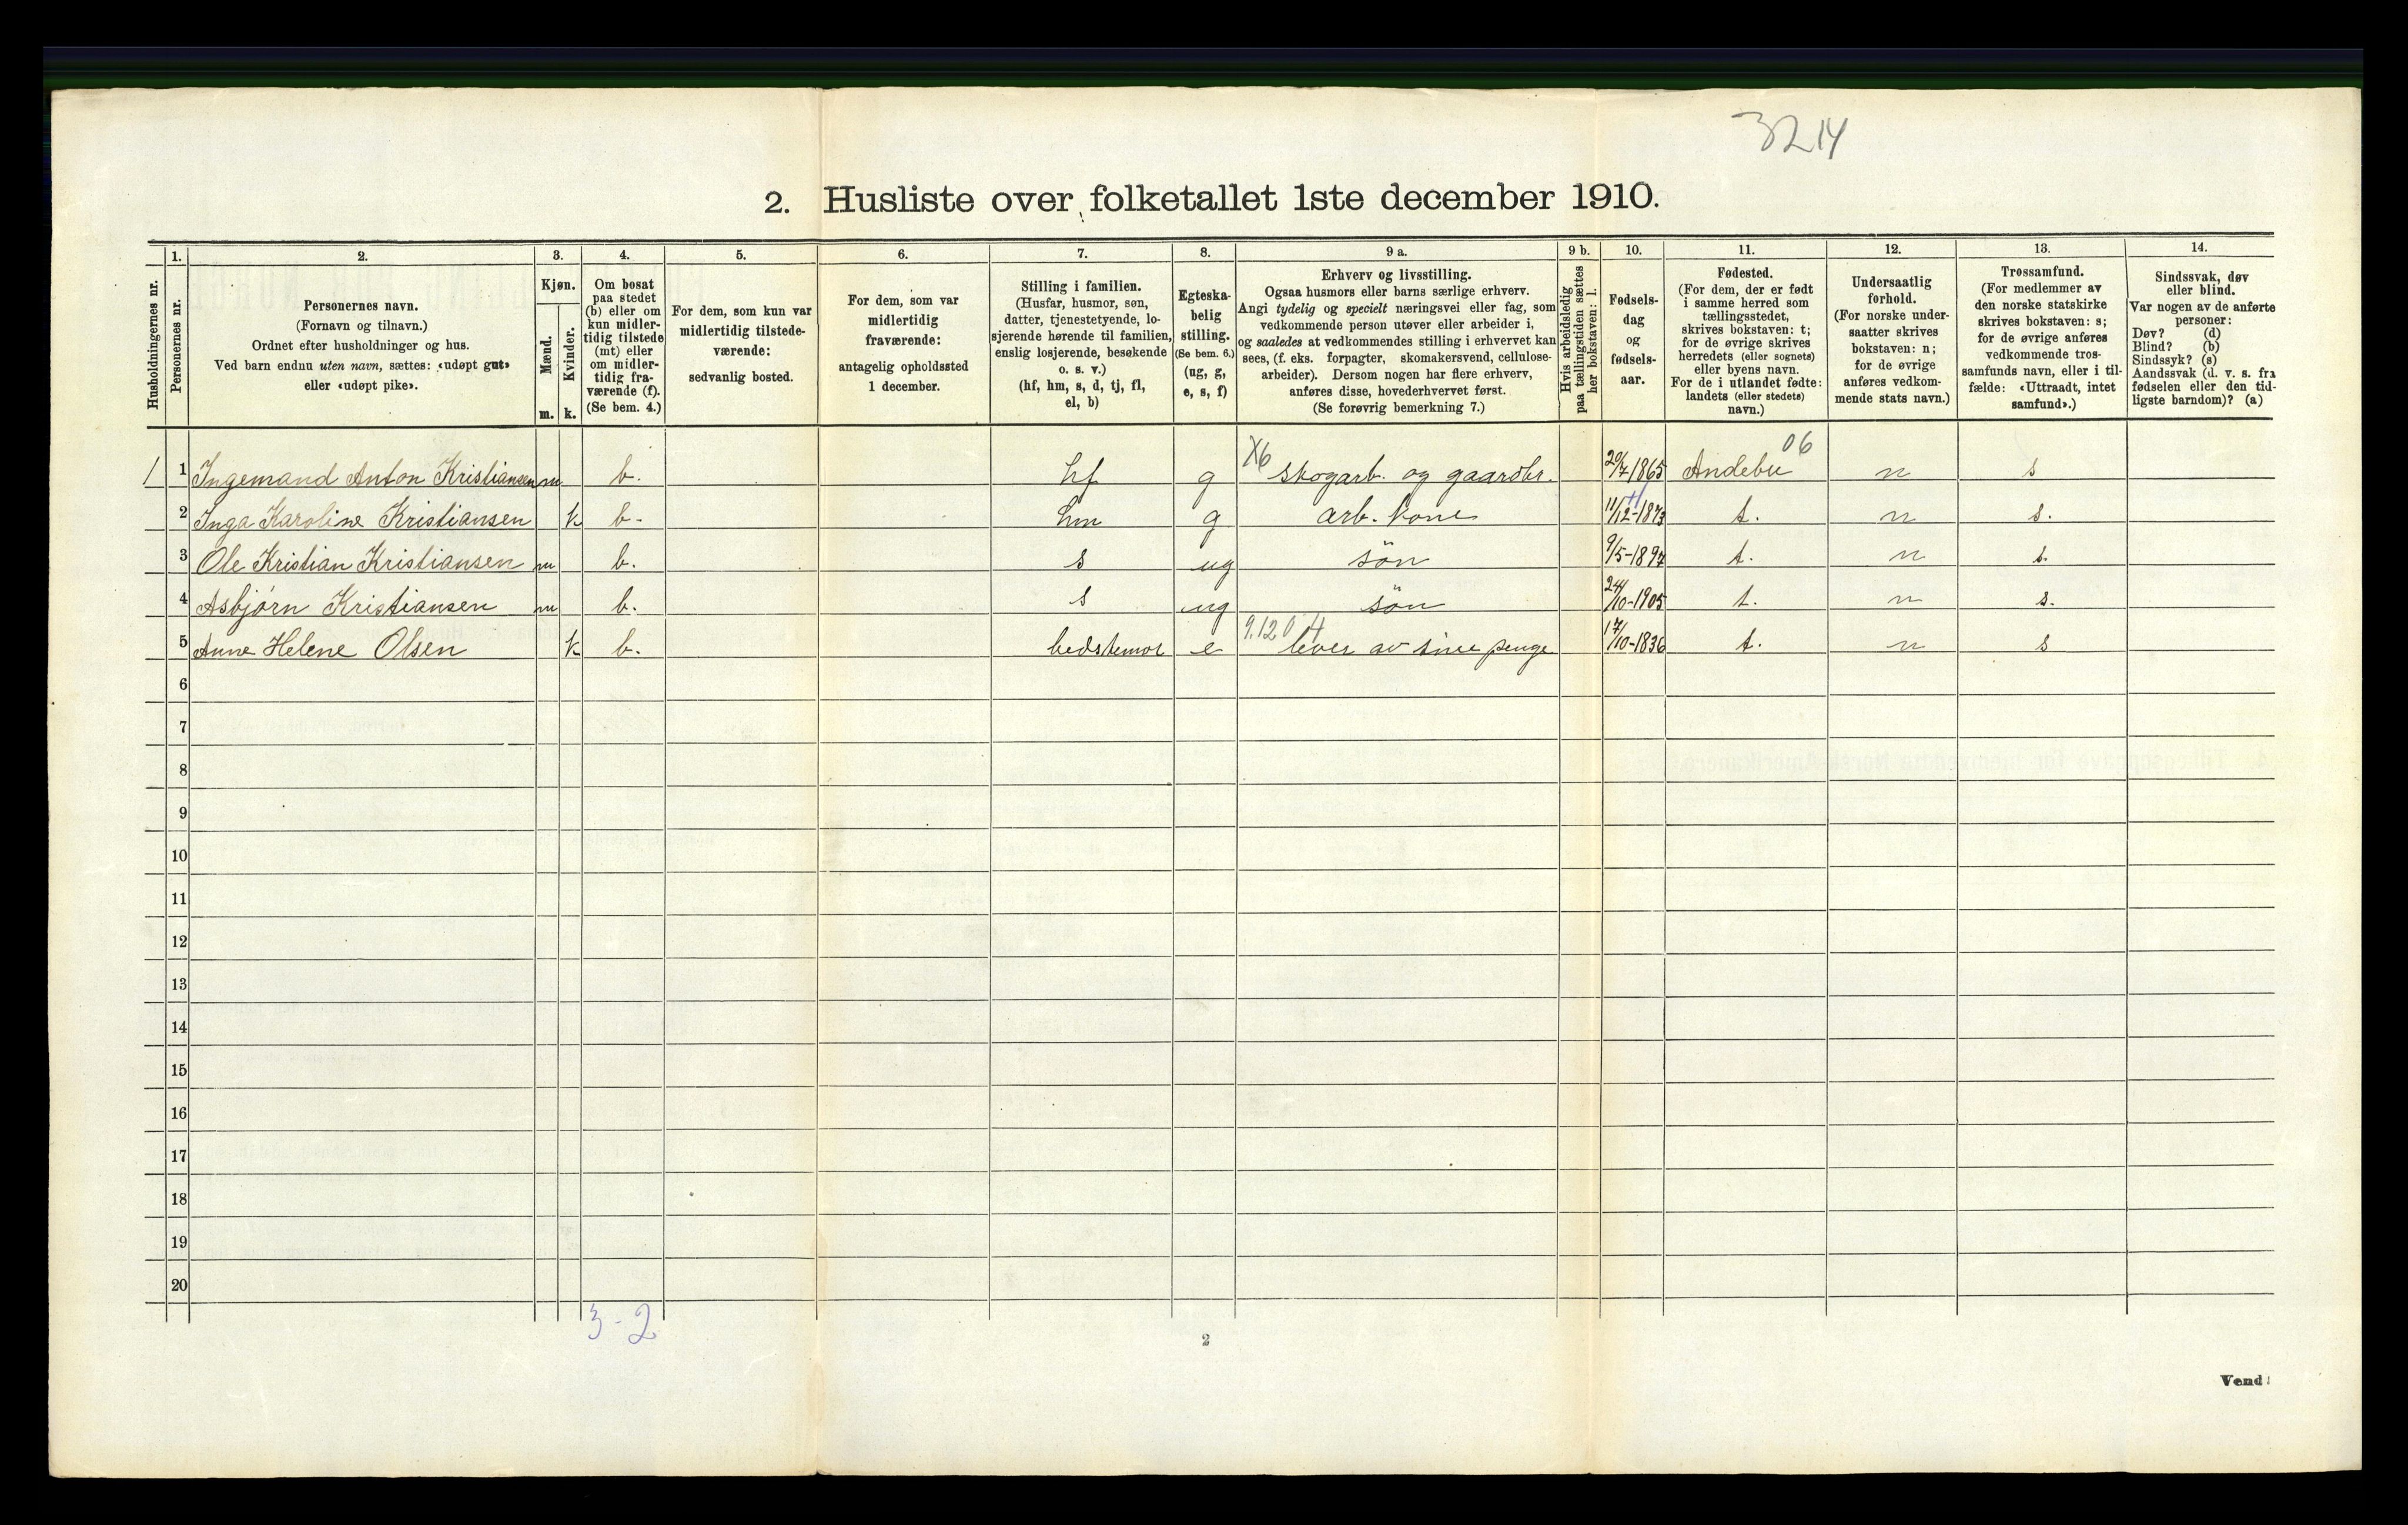 3214
2. Husliste over folketallet 1ste december 1910.
Husholdningernes nr.
1.
Personernes nr.
2.
Personernes navn.
(Fornavn og tilnavn.)
Ordnet efter husholdninger og hus.
Ved barn endnu uten navn, sættes: «udøpt gut»
eller «udøpt pike».
3.
Kjøn.
Mænd.
m.
Kvinder.
k.
4.
Om bosat
paa stedet
(b) eller om
kun midler-
tidig tilstede
(mt) eller
om midler-
tidig fra-
værende (f).
(Se bem. 4.)
5.
For dem, som kun var
midlertidig tilstede-
værende:
sedvanlig bosted.
6.
For dem, som var
midlertidig
fraværende:
antagelig opholdssted
1 december.
7.
Stilling i familien.
(Husfar, husmor, søn,
datter, tjenestetyende, lo-
sjerende hørende til familien,
enslig losjerende, besøkende
o. s. v.)
(hf, hm, s, d, tj, fl,
el, b)
8.
Egteska-
belig
stilling.
(Se bem. 6.)
(ug, g,
e, s, f)
9 a.
Erhverv og livsstilling.
Ogsaa husmors eller barns særlige erhverv.
Angi tydelig og specielt næringsvei eller fag, som
vedkommende person utøver eller arbeider i,
og saaledes at vedkommendes stilling i erhvervet kan
sees, (f. eks. forpagter, skomakersvend, cellulose-
arbeider). Dersom nogen har flere erhverv,
anføres disse, hovederhvervet først.
(Se forøvrig bemerkning 7.)
9 b.
Hvis arbeidsledig
paa tællingstiden sættes
her bokstaven: l.
10.
Fødsels-
dag
og
fødsels-
aar.
11.
Fødested.
(For dem, der er født
i samme herred som
tællingsstedet,
skrives bokstaven: t;
for de øvrige skrives
herredets (eller sognets)
eller byens navn.
For de i utlandet fødte:
landets (eller stedets)
navn.)
12.
Undersaatlig
forhold.
(For norske under-
saatter skrives
bokstaven: n;
for de øvrige
anføres vedkom-
mende stats navn.)
13.
Trossamfund.
(For medlemmer av
den norske statskirke
skrives bokstaven: s;
for de øvrige anføres
vedkommende tros-
samfunds navn, eller i til-
fælde: «Uttraadt, intet
samfund».)
14.
Sindssvak, døv
eller blind.
Var nogen av de anførte
personer:
Døv? (d)
Blind? (b)
Sindssyk? (s)
Aandssvak (d. v. s. fra
fødselen eller den tid-
ligste barndom)? (a)
X6 06
1 1 Ingemand Anton Kristiansen m b. hf g skogarb. og gaardbr. 20/7 1865 Andebu n s
2 Inga Karoline Kristiansen k b. hm g arb. kone 11/12-1873 t. n s.
3 Ole Kristian Kristiansen m b. s ug sön 9/5-1897 t. n s.
4 Asbjørn Kristiansen m b. s ug sön 24/10-1905 t. n s.
5 Anne Helene Olsen k b. bedstemor e lever av sine penge 17/10-1836 t. n s
6
7
8
9
10
11
12
13
14
15
16
17
18
19
20
3-2
2
Vend!